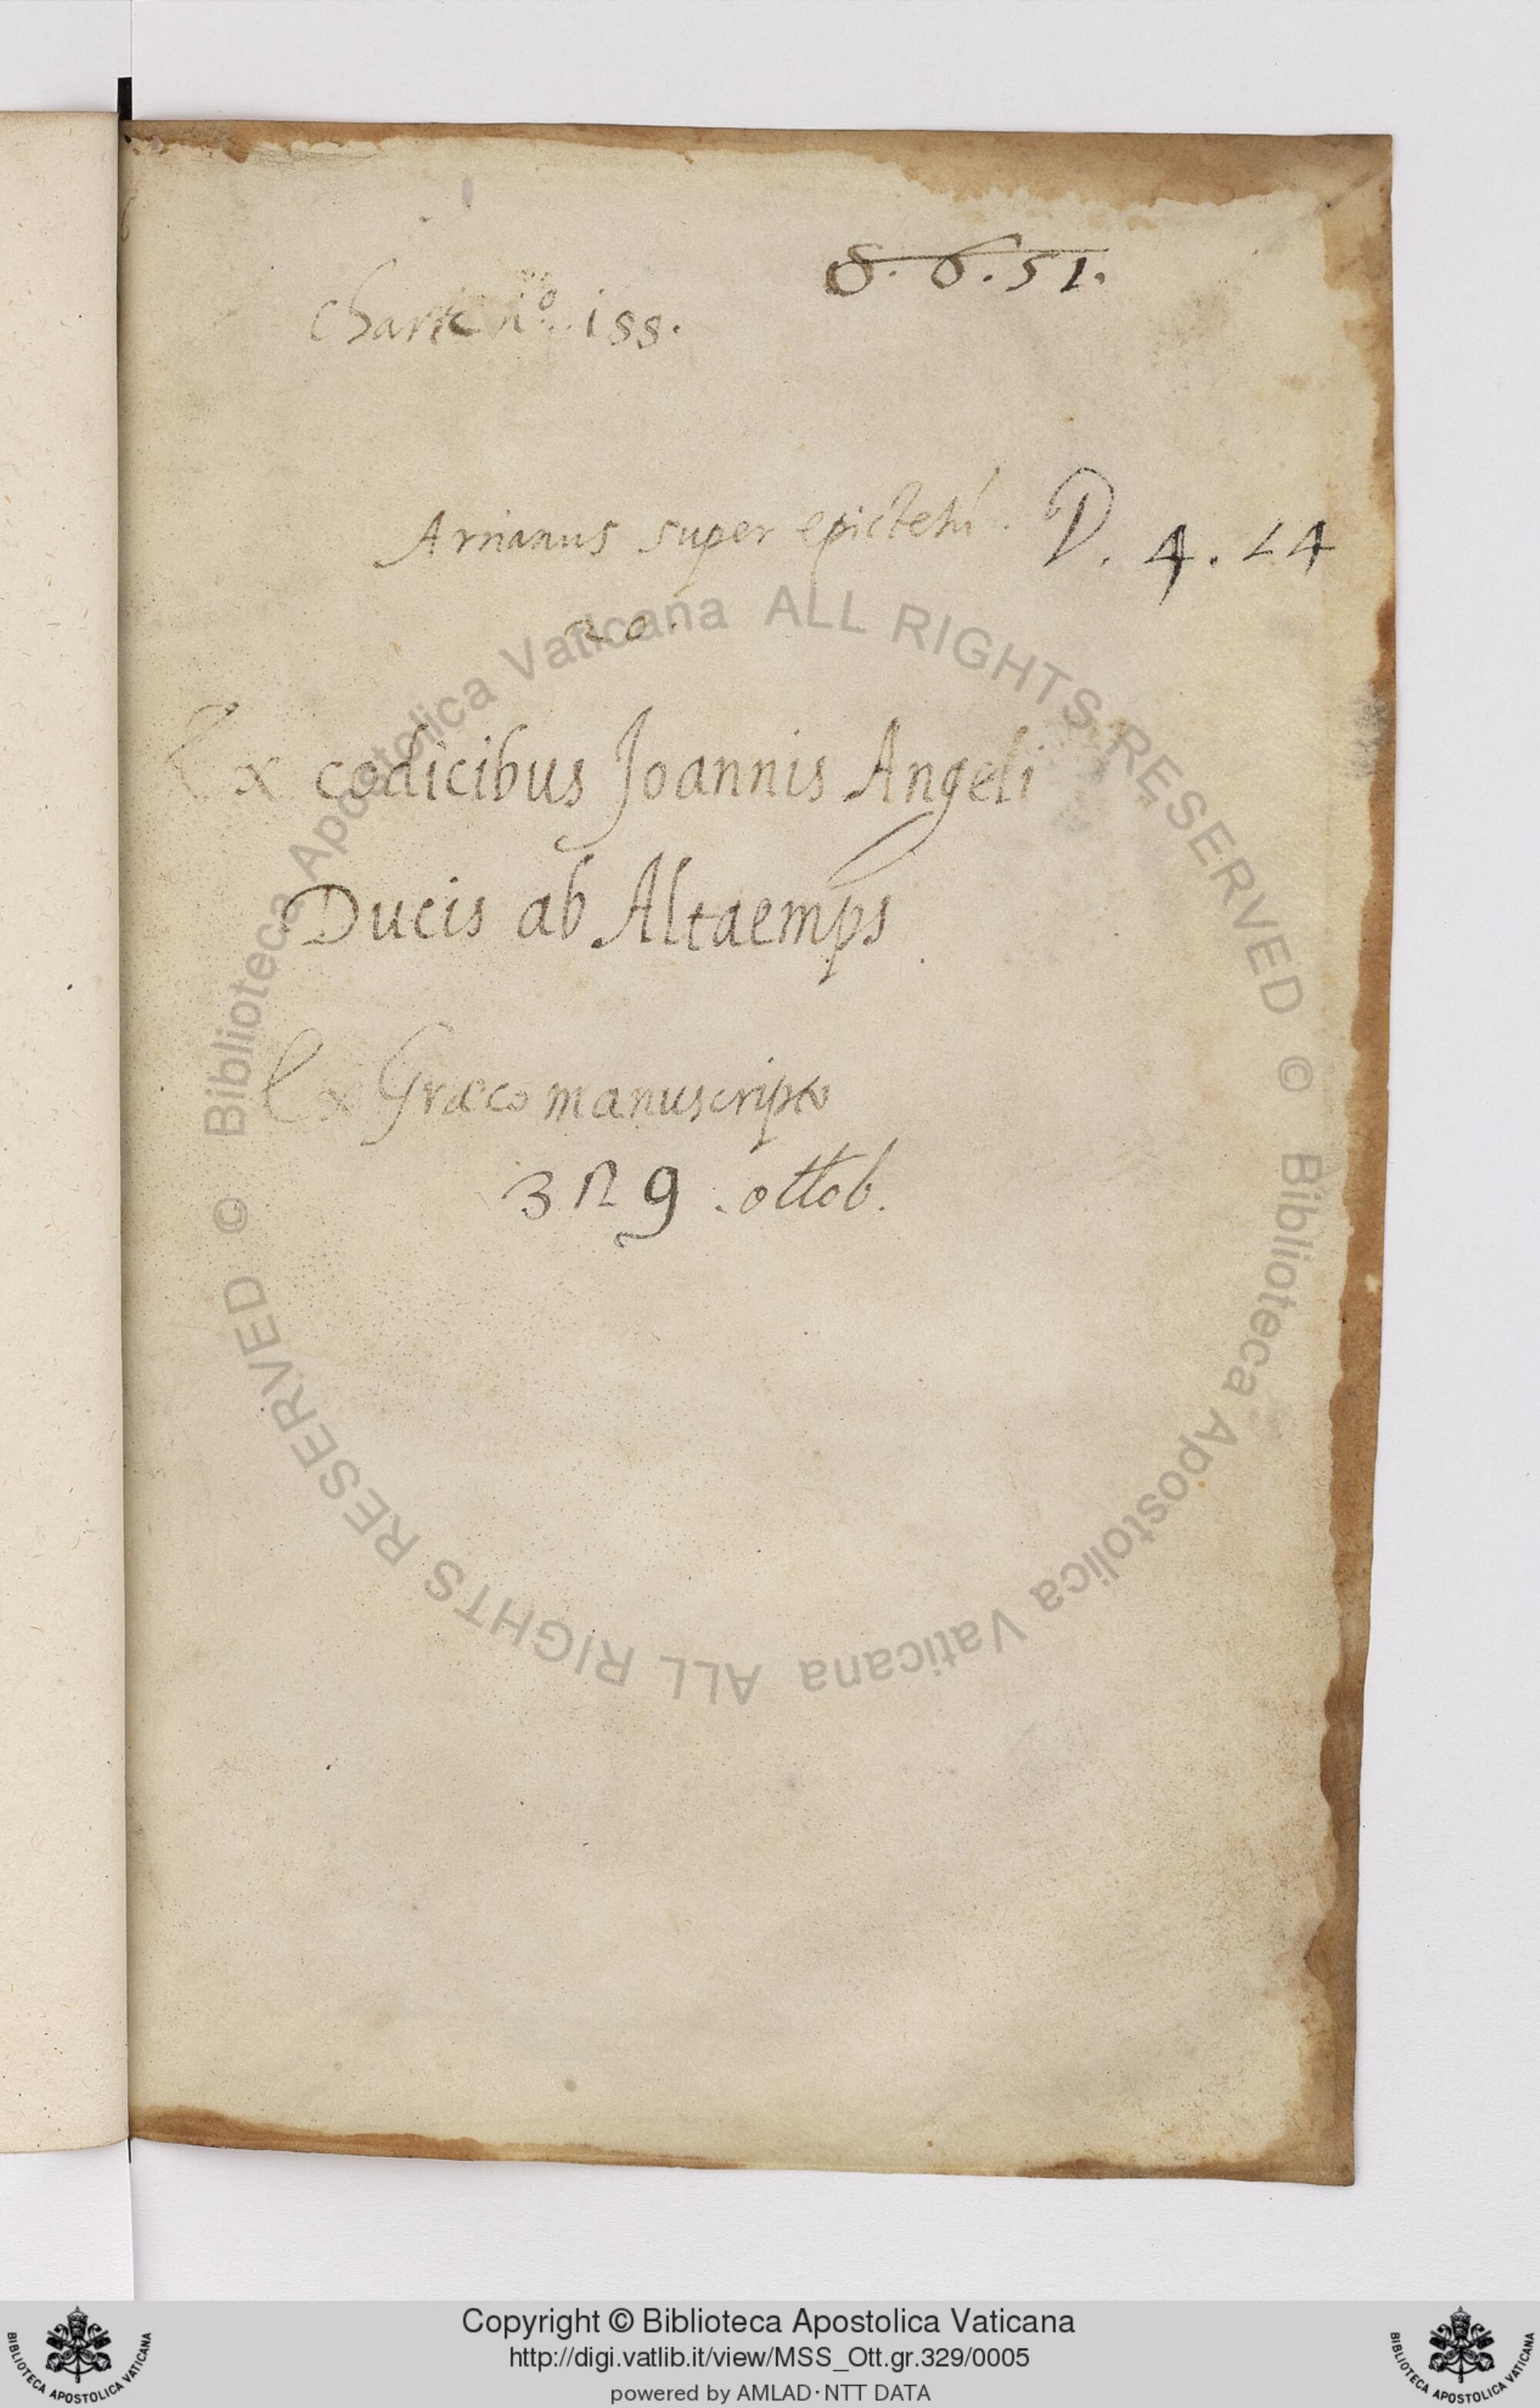 8. 6. 51.
charte nº. 188.
Arrianus super epictetū. D. 4. 24
20.
Ex codicibus Joannis Angeli
Ducis ab Altaemps
Ex Græco manuscripto
329 . ottob.
© Biblioteca Apostolica Vaticana ALL RIGHTS RESERVED
© Biblioteca Apostolica Vaticana ALL RIGHTS RESERVED
Copyright © Biblioteca Apostolica Vaticana
http://digi.vatlib.it/view/MSS_Ott.gr.329/0005
powered by AMLAD·NTT DATA
BIBLIOTECA APOSTOLICA VATICANA
BIBLIOTECA APOSTOLICA VATICANA